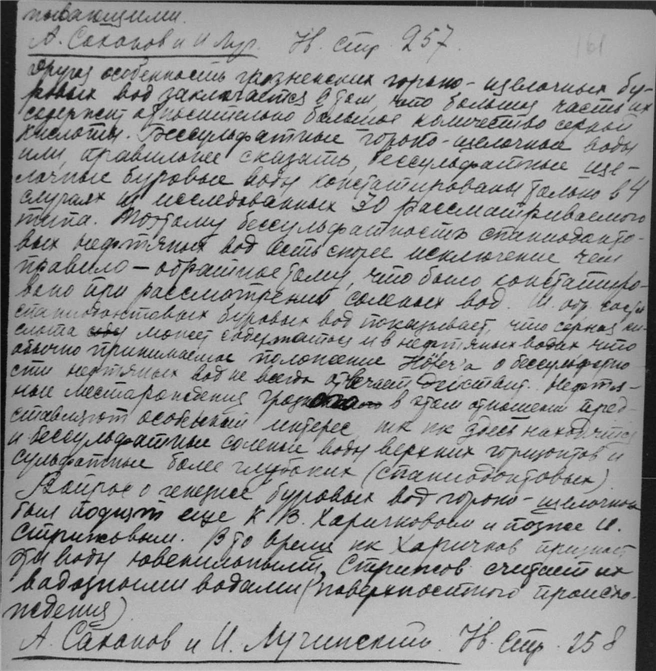 пывающими.
А. Саханов и И Луч. Нв. стр 257.
161
Другая особенность грозненских горько-щелочных бу-
ровых вод заключается в том, что большая часть их
содержит относительно большое количество серной
кислоты. Бессульфатные горько-щелочные воды
или, правильнее сказать, бессульфатные ще-
лочные буровые воды констатированы только в 4
случаях из исследованных 30 рассматриваемого
типа. Поэтому бессульфатность спаниодонто-
вых нефтяных вод есть скорее исключение чем
правило — обратное тому, что было констатиро-
вано при рассмотрении соленых вод. И
спаниодонтовых буровых вод показывает, что серная ки-
слота может содержаться и в нефтяных водах что
обычно принимаемое положение Höfer'а о бессульфатно-
сти нефтяных вод не всегда отвечает действит. Нефтя-
ные месторождения в этом отношении пред-
ставляют особенный интерес тк кк здесь находятся
и бессульфатные соленые воды верхних горизонтов и
сульфатные более глубоких (спаниодонтовых).
Вопрос о генезисе буровых вод горько-щелочной
был поднят еще К. В. Харичковым и позднее И.
Стрижовым. В то время кк Харичков признает
эти воды ювенильными, Стрижов считает их
вадозными водами (поверхностного происхо-
ждения)
А. Саханов и И. Лучинский. Нв. стр. 258